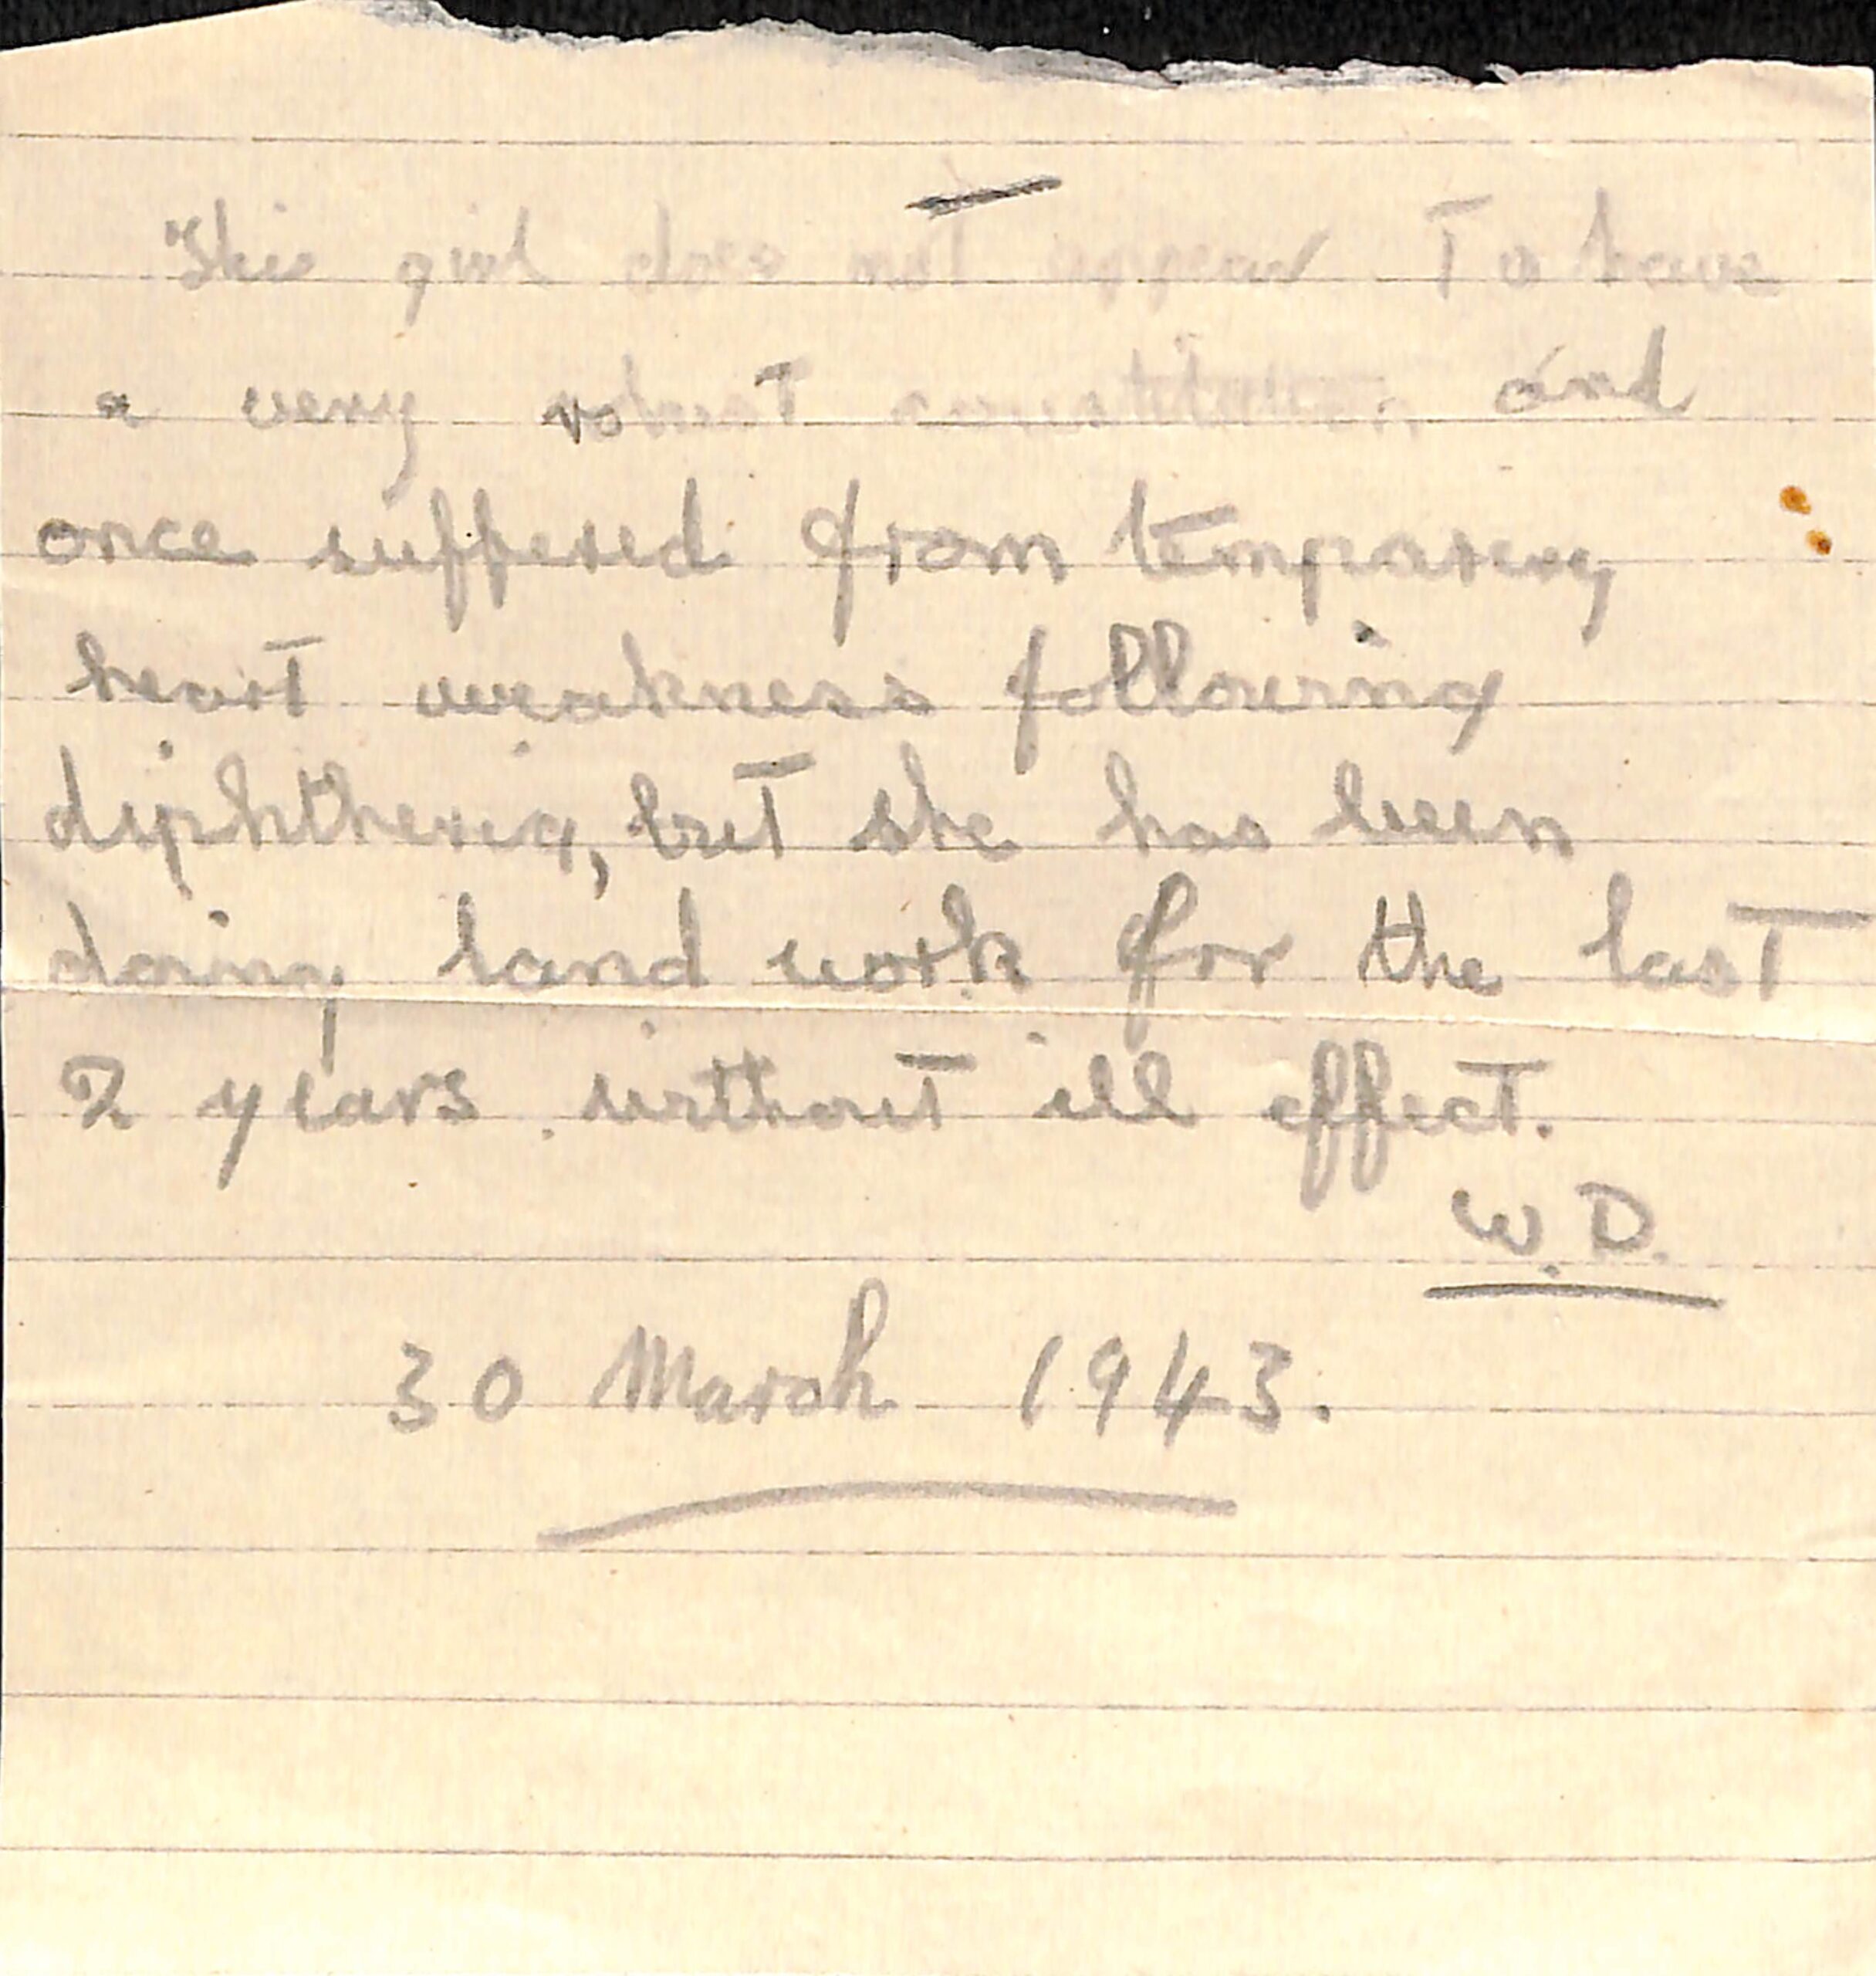 This girl does not appear to have
a very robust constitution and
once suffered from temporary
heart weakness following
diphtheria, but she has been
doing land work for the last
2 years without ill effect.
W.D.
30 March 1943.